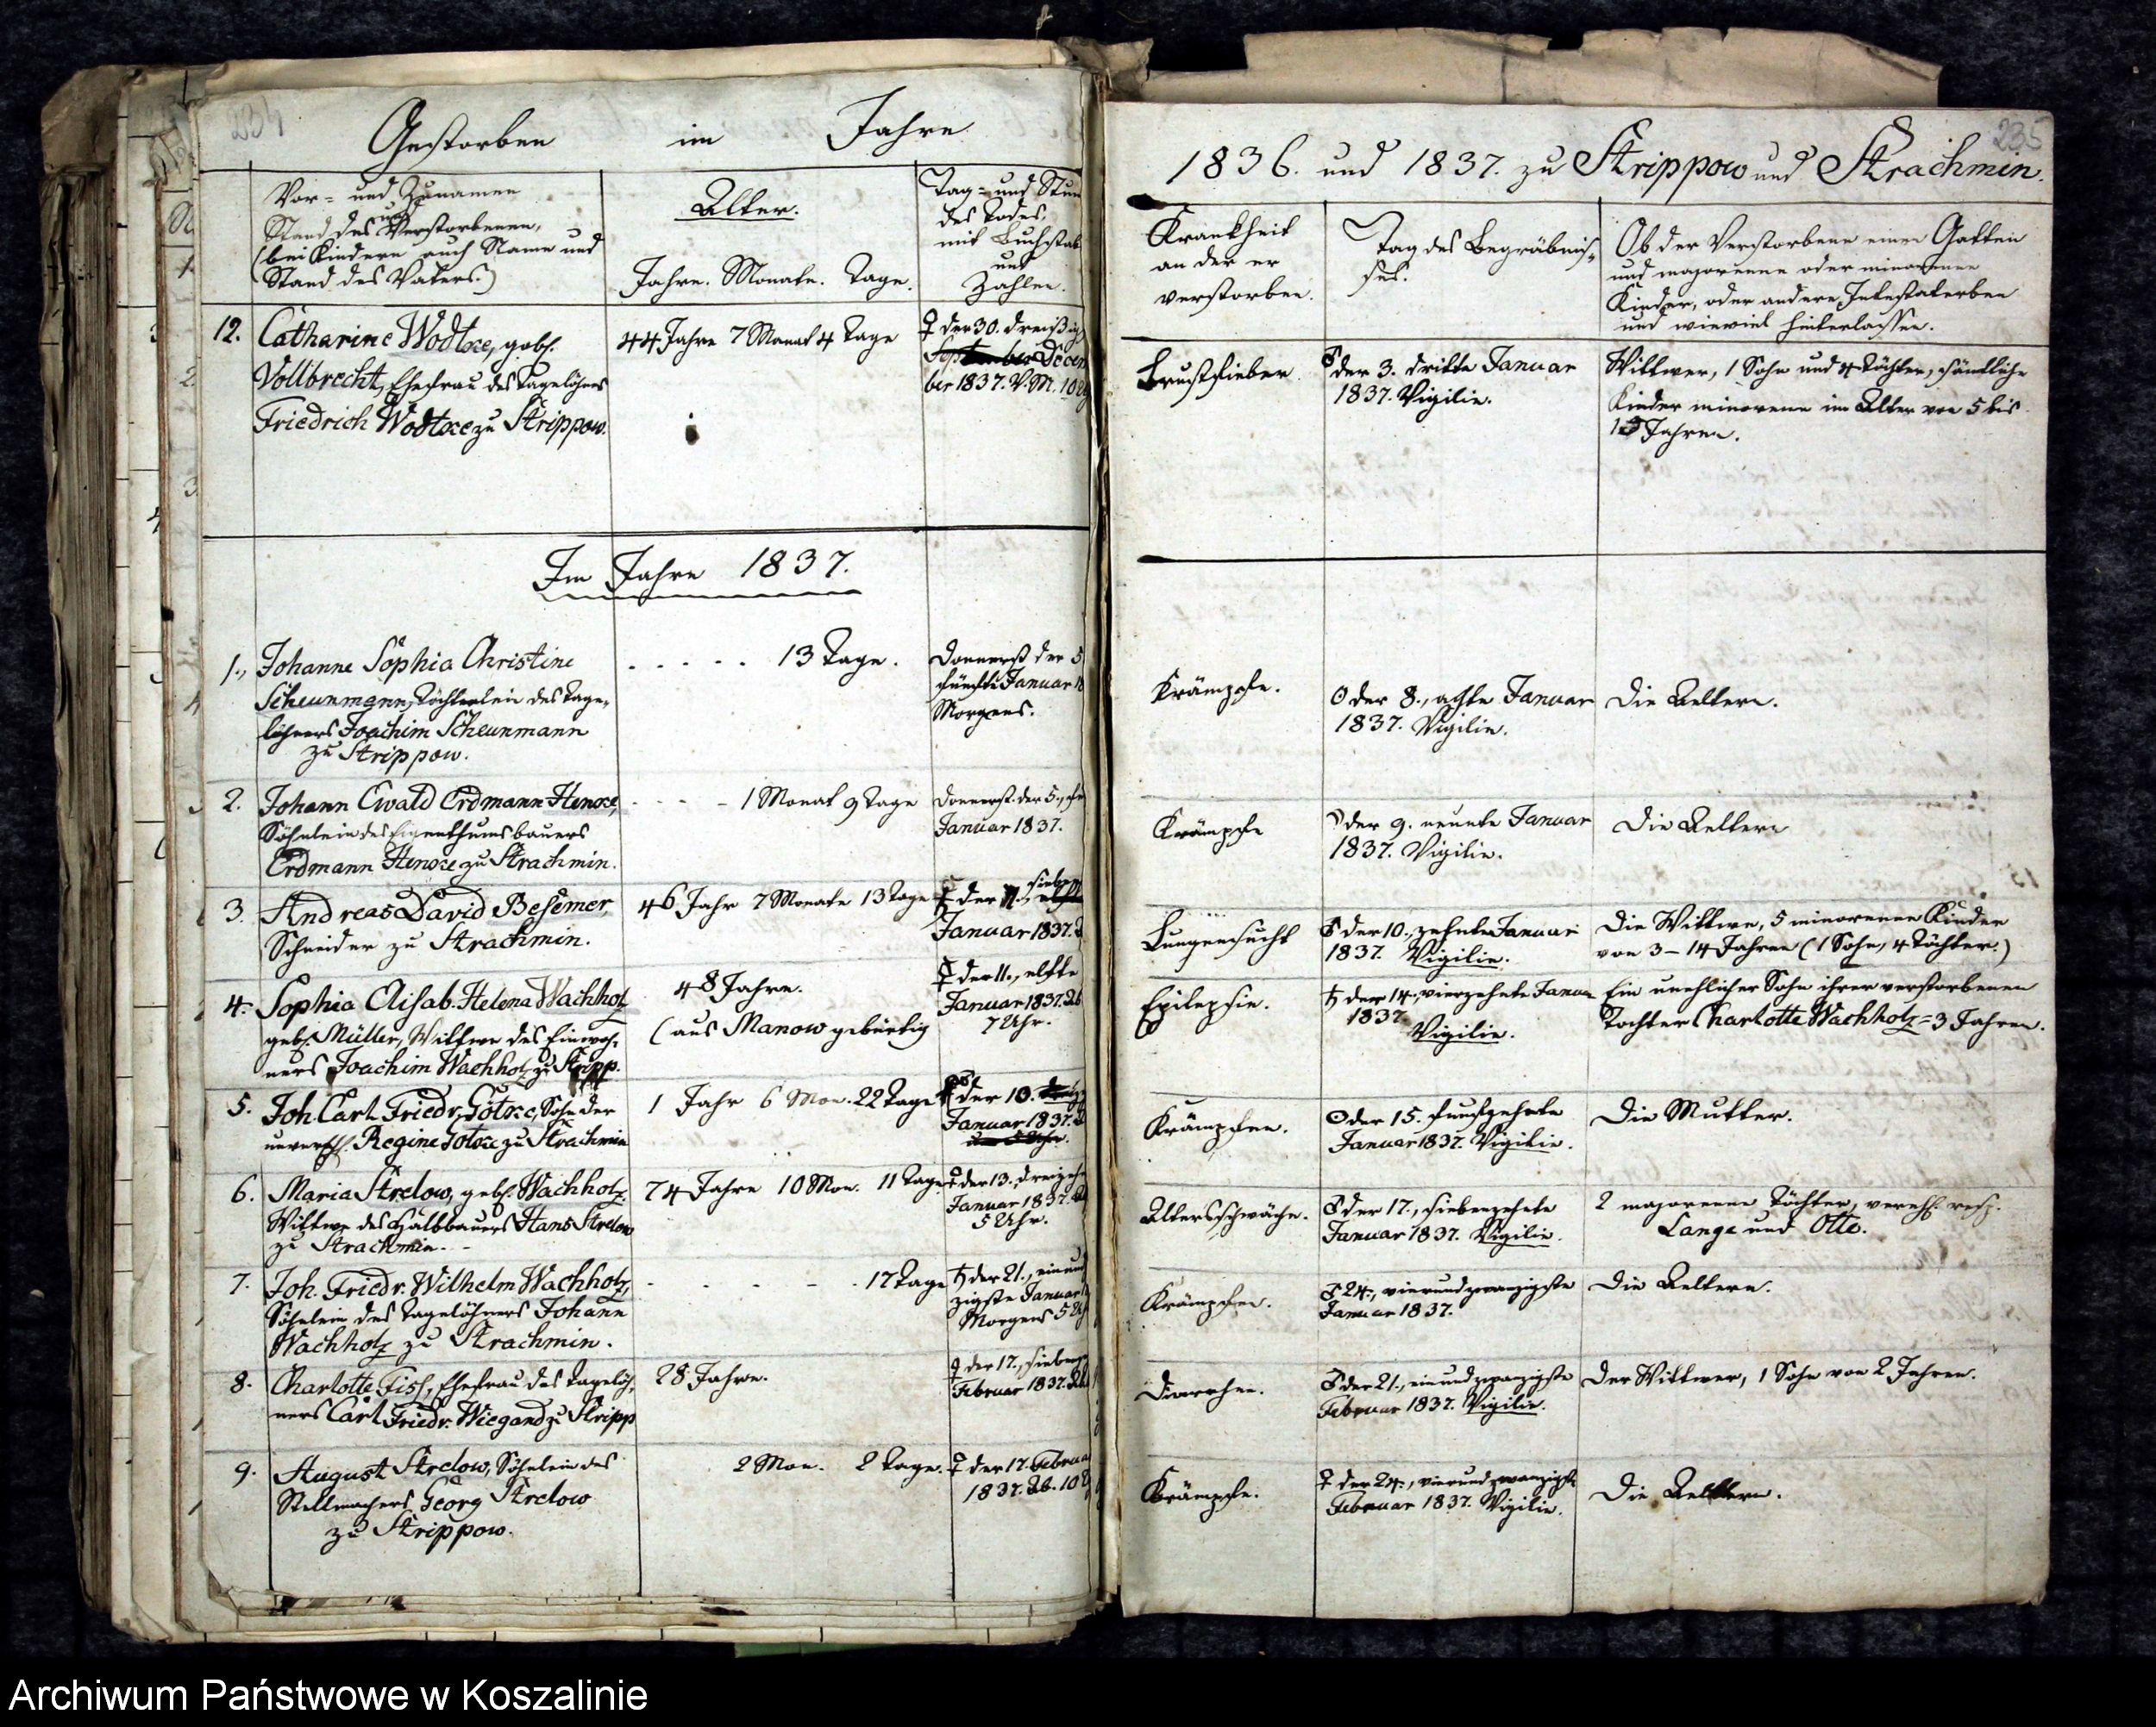 234
Gestorben im Jahre
Vor- und Zunamen
und
Stand des Verstorbenen,
(bei Kindern auch Name und
Stand des Vaters.)
Alter.
Jahre. Monate. Tage.
Tag- und Stun
des Todes,
mit Buchstab
und
Zahlen.
12. Catharine Wodtke, gebh.
Vollbrecht, Ehefrau des Tagelöhners
Friedrich Wodtke zu Strippow.
44 Jahre 7 Monat 4 Tage
♀ der 30. dreißig
Decem
ber 1837. V.M. 10
Im Jahre 1837.
1., Johanne Sophia Christine
Scheunmann, Töchterlein des Tage-
löhners Joachim Scheunmann
zu Strippow.
13 Tage.
Donnerst der 5
fünfte Januar 18
Morgens.
2. Johann Ewald Erdmann Henke,
Söhnlein des Eigenthumsbauers
Erdmann Henke zu Strachmin.
1 Monat 9 Tage
Donnerst. der 5.,
Januar 1837.
3. Andreas David Besemer,
Schneider zu Strachmin.
46 Jahr 7 Monate 13 Tage
sieben
Januar 1837.
4. Sophia Elisab. Helena Wachholz
geb. Müller, Wittwe des Einwoh-
ners Joachim Wachholz zu Stripp.
48 Jahre.
(aus Manow gebürtig
der 11., elfte
Januar 1837. Ab
7 Uhr.
5. Joh. Carl Friedr. Götke, Sohn der
unverehl. Regine Götke zu Strachmin
1 Jahr 6 Mon. 22 Tage
der 10.
Januar 1837.
6. Maria Strelow, geb. Wachholz.
Wittwe des Halbbauers Hans Strelow
zu Strachmin.
74 Jahre 10 Mon. 11 Tage
♀ der 13. dreizeh
Januar 1837.
5 Uhr.
7. Joh. Friedr. Wilhelm Wachholz,
Söhnlein des Tagelöhners Johann
Wachholz zu Strachmin.
17 Tage
♄ der 21., einund
zigste Januar
Morgens 5
8. Charlotte Fiss, Ehefrau des Tagelöh-
ners Carl Friedr. Wiegand zu Stripp
28 Jahre.
♀ der 17., siebenze
Februar 1837. Ab
9. August Strelow, Söhnlein des
Stellmachers Georg Strelow
zu Strippow.
2 Mon. 2 Tage.
♀ der 17. Februar
1837. Ab. 10
235
1836. und 1837. zu Strippow und Strachmin.
Krankheit
an der er
verstorben.
Tag des Begräbnis-
ses.
Ob der Verstorbene einen Gatten
und majorenne oder minorenne
Kinder, oder andere Intestaterben
und wieviel hinterlassen.
Brustfieber
♂ der 3. dritte Januar
1837. Vigilie.
Wittwer, 1 Sohn und 4 Töchter, sämtliche
Kinder minorenn im Alter von 5 bis
Jahren.
Krämpfe.
☉ der 8., achte Januar
1837. Vigilie.
Die Aeltern.
Krämpfe
☽ der 9. neunte Januar
1837. Vigilie.
Die Aeltern
Lungensucht
♂ der 10., zehnte Januar
1837. Vigilie.
Die Wittwe, 5 minorenne Kinder
von 3–14 Jahren (1 Sohn, 4 Töchter.)
Epilepsie.
♄ der 14., vierzehnte Januar
1837.
Vigilie.
Ein unehlicher Sohn ihrer verstorbenen
Tochter Charlotte Wachholz = 3 Jahren.
Krämpfen.
☉ der 15. funfzehnte
Januar 1837. Vigilie.
Die Mutter.
Altersschwäche.
♂ der 17., siebenzehnte
Januar 1837. Vigilie.
2 majorenne Töchter, verehl. resp.
Lange und Otto.
Krämpfen.
♂ 24., vierundzwanzigste
Januar 1837.
Die Aeltern.
Diarrhee.
♂ der 21., einundzwanzigste
Februar 1837. Vigilie.
Der Wittwer, 1 Sohn von 2 Jahren.
Krämpfe.
♀ der 24., vierundzwanzigste
Februar 1837. Vigilie.
Die Aeltern.
Archiwum Państwowe w Koszalinie